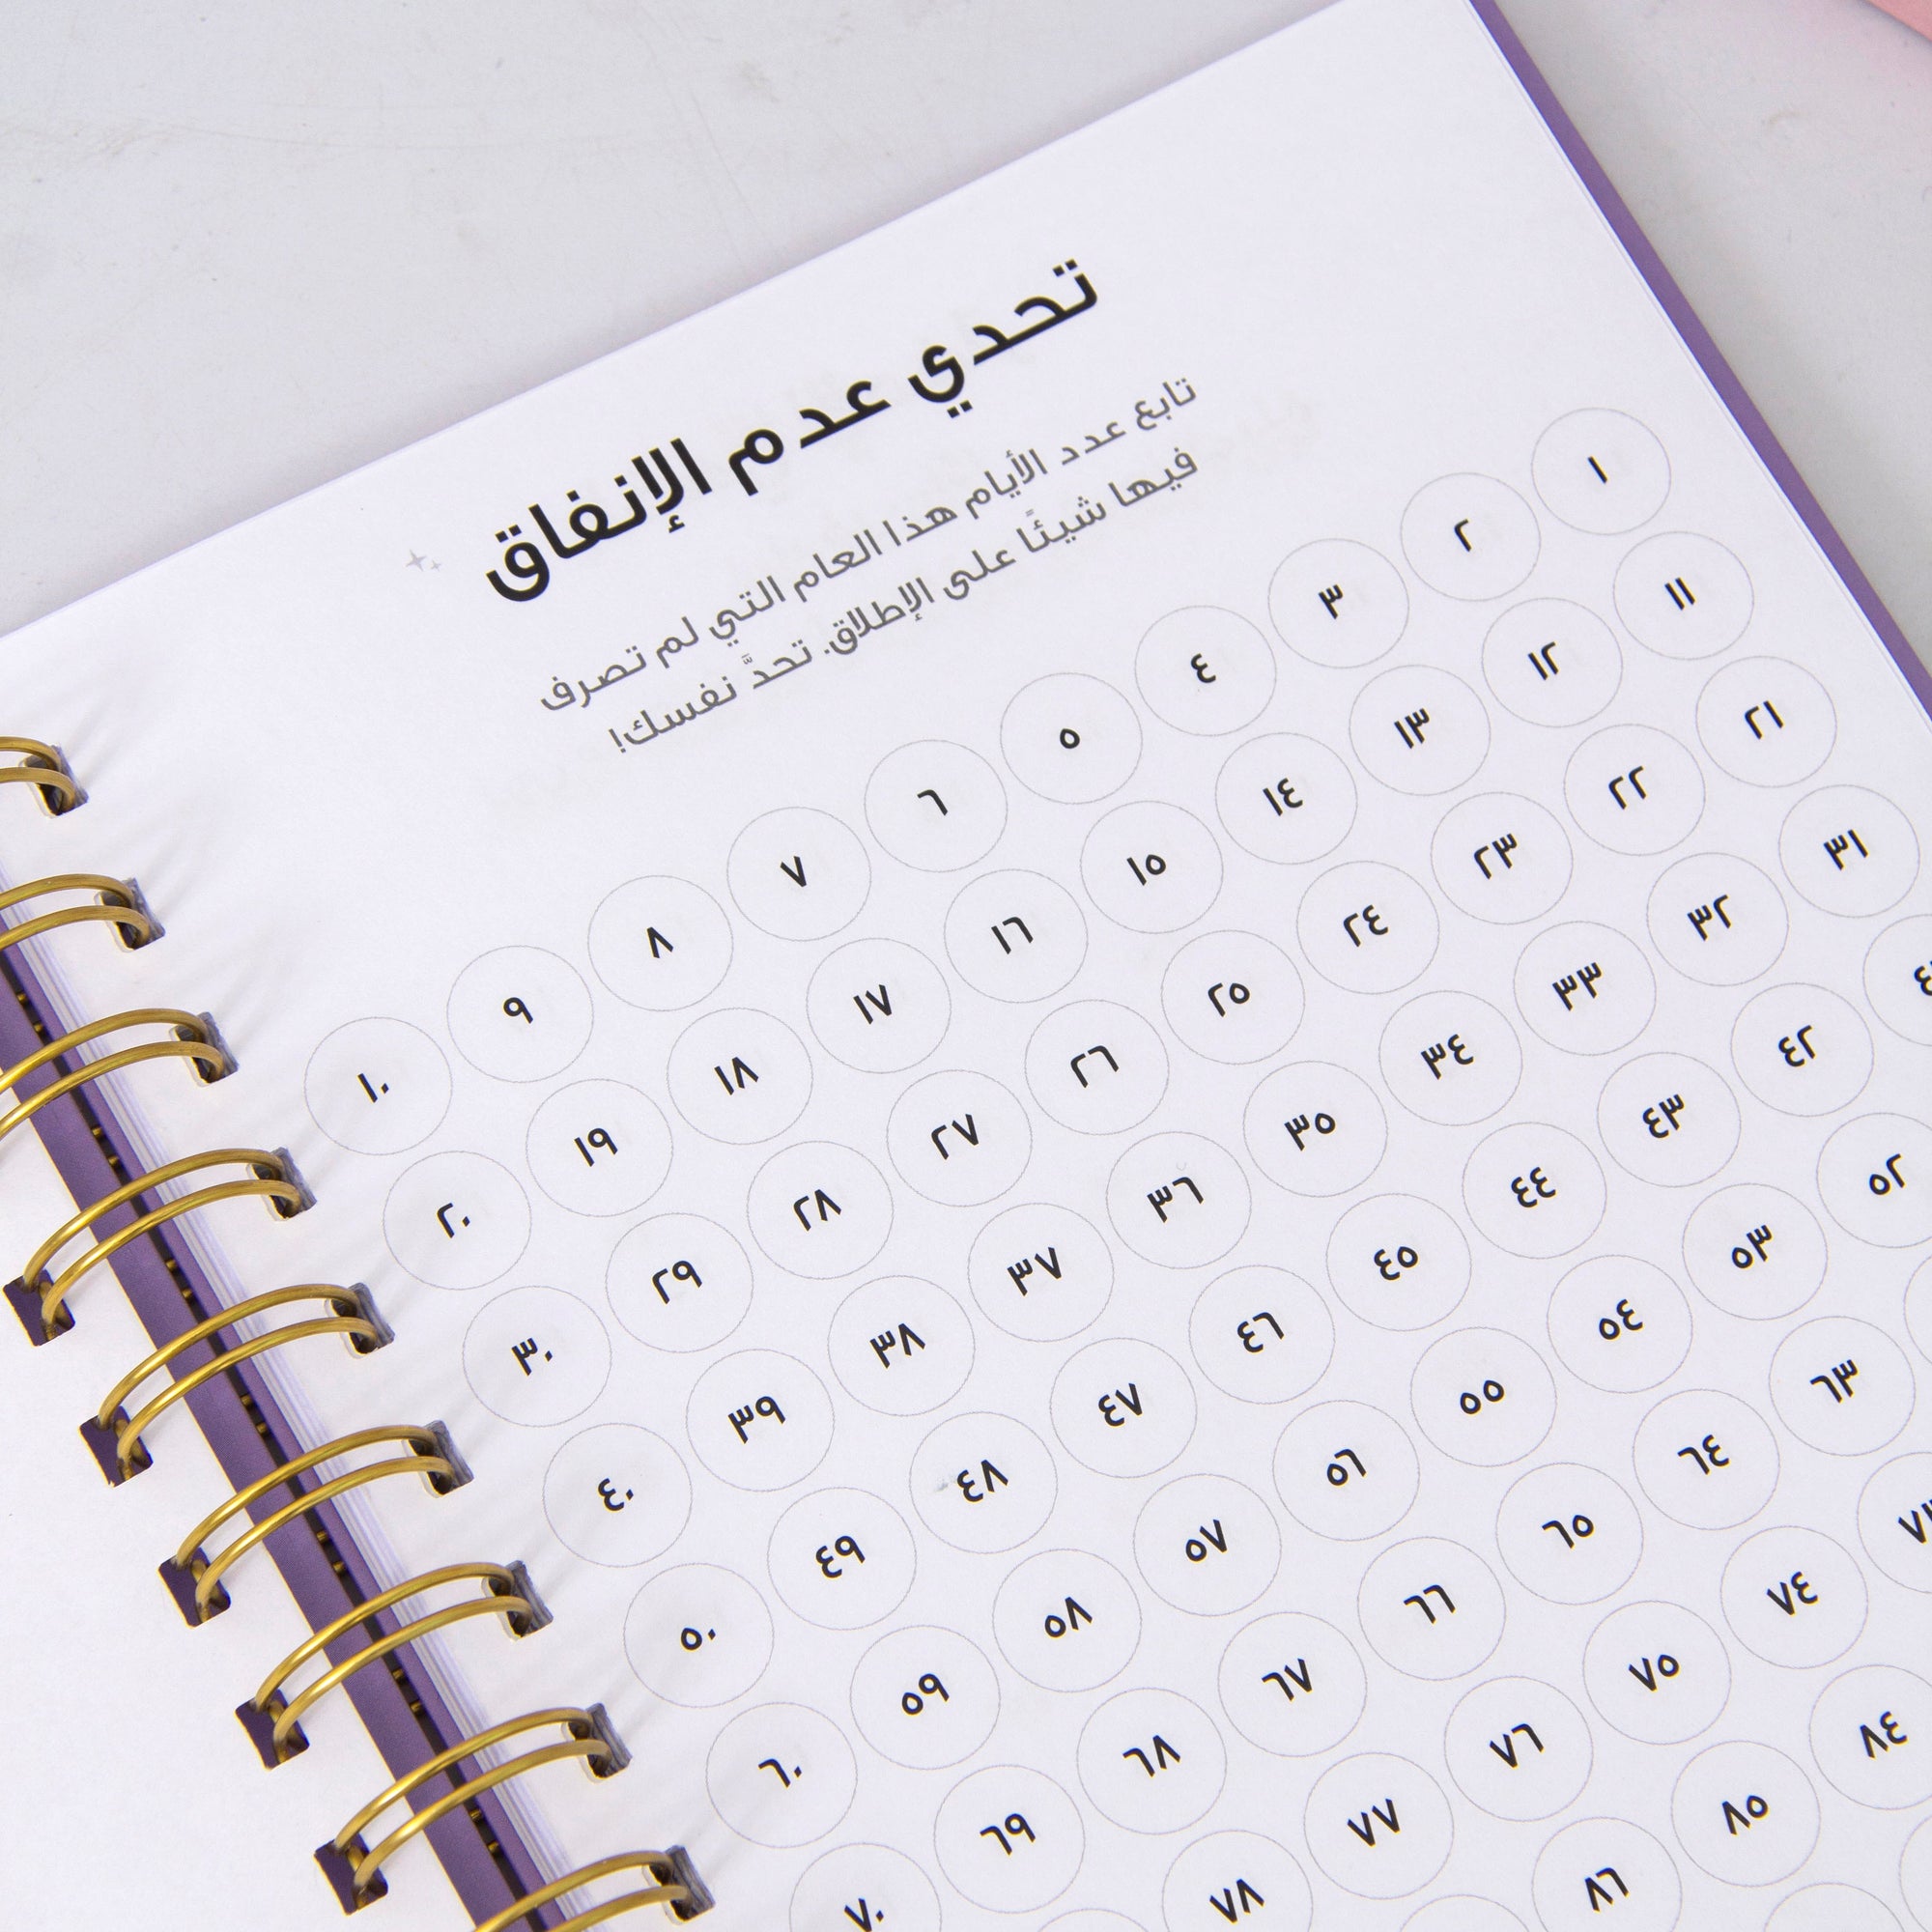 تحدي عدم الإنفاق
تابع عدد الأيام هذا العام التي لم تصرف
فيها شيئًا على الإطلاق. تحدَّ نفسك!
١ ٢ ٣ ٤ ٥ ٦ ٧ ٨ ٩ ١٠
١١ ١٢ ١٣ ١٤ ١٥ ١٦ ١٧ ١٨ ١٩ ٢٠
٢١ ٢٢ ٢٣ ٢٤ ٢٥ ٢٦ ٢٧ ٢٨ ٢٩ ٣٠
٣١ ٣٢ ٣٣ ٣٤ ٣٥ ٣٦ ٣٧ ٣٨ ٣٩ ٤٠
٤٢ ٤٣ ٤٤ ٤٥ ٤٦ ٤٧ ٤٨ ٤٩ ٥٠
٥٢ ٥٣ ٥٤ ٥٥ ٥٦ ٥٧ ٥٨ ٥٩ ٦٠
٦٣ ٦٤ ٦٥ ٦٦ ٦٧ ٦٨ ٦٩ ٧٠
٧٤ ٧٥ ٧٦ ٧٧ ٧٨
٨٤ ٨٥ ٨٦